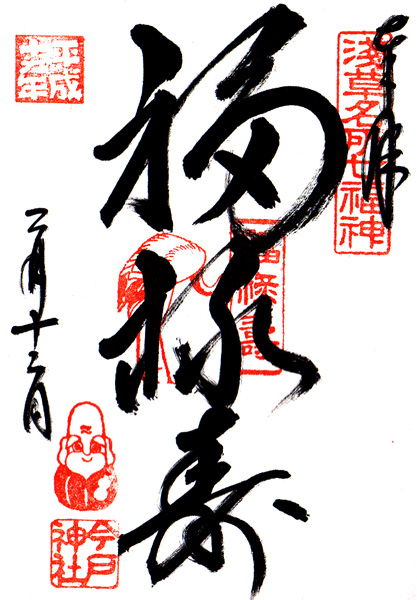 奉拝
浅草名所七福神
福禄寿
福禄壽
平成
六年
二月十三日
今戸
神社